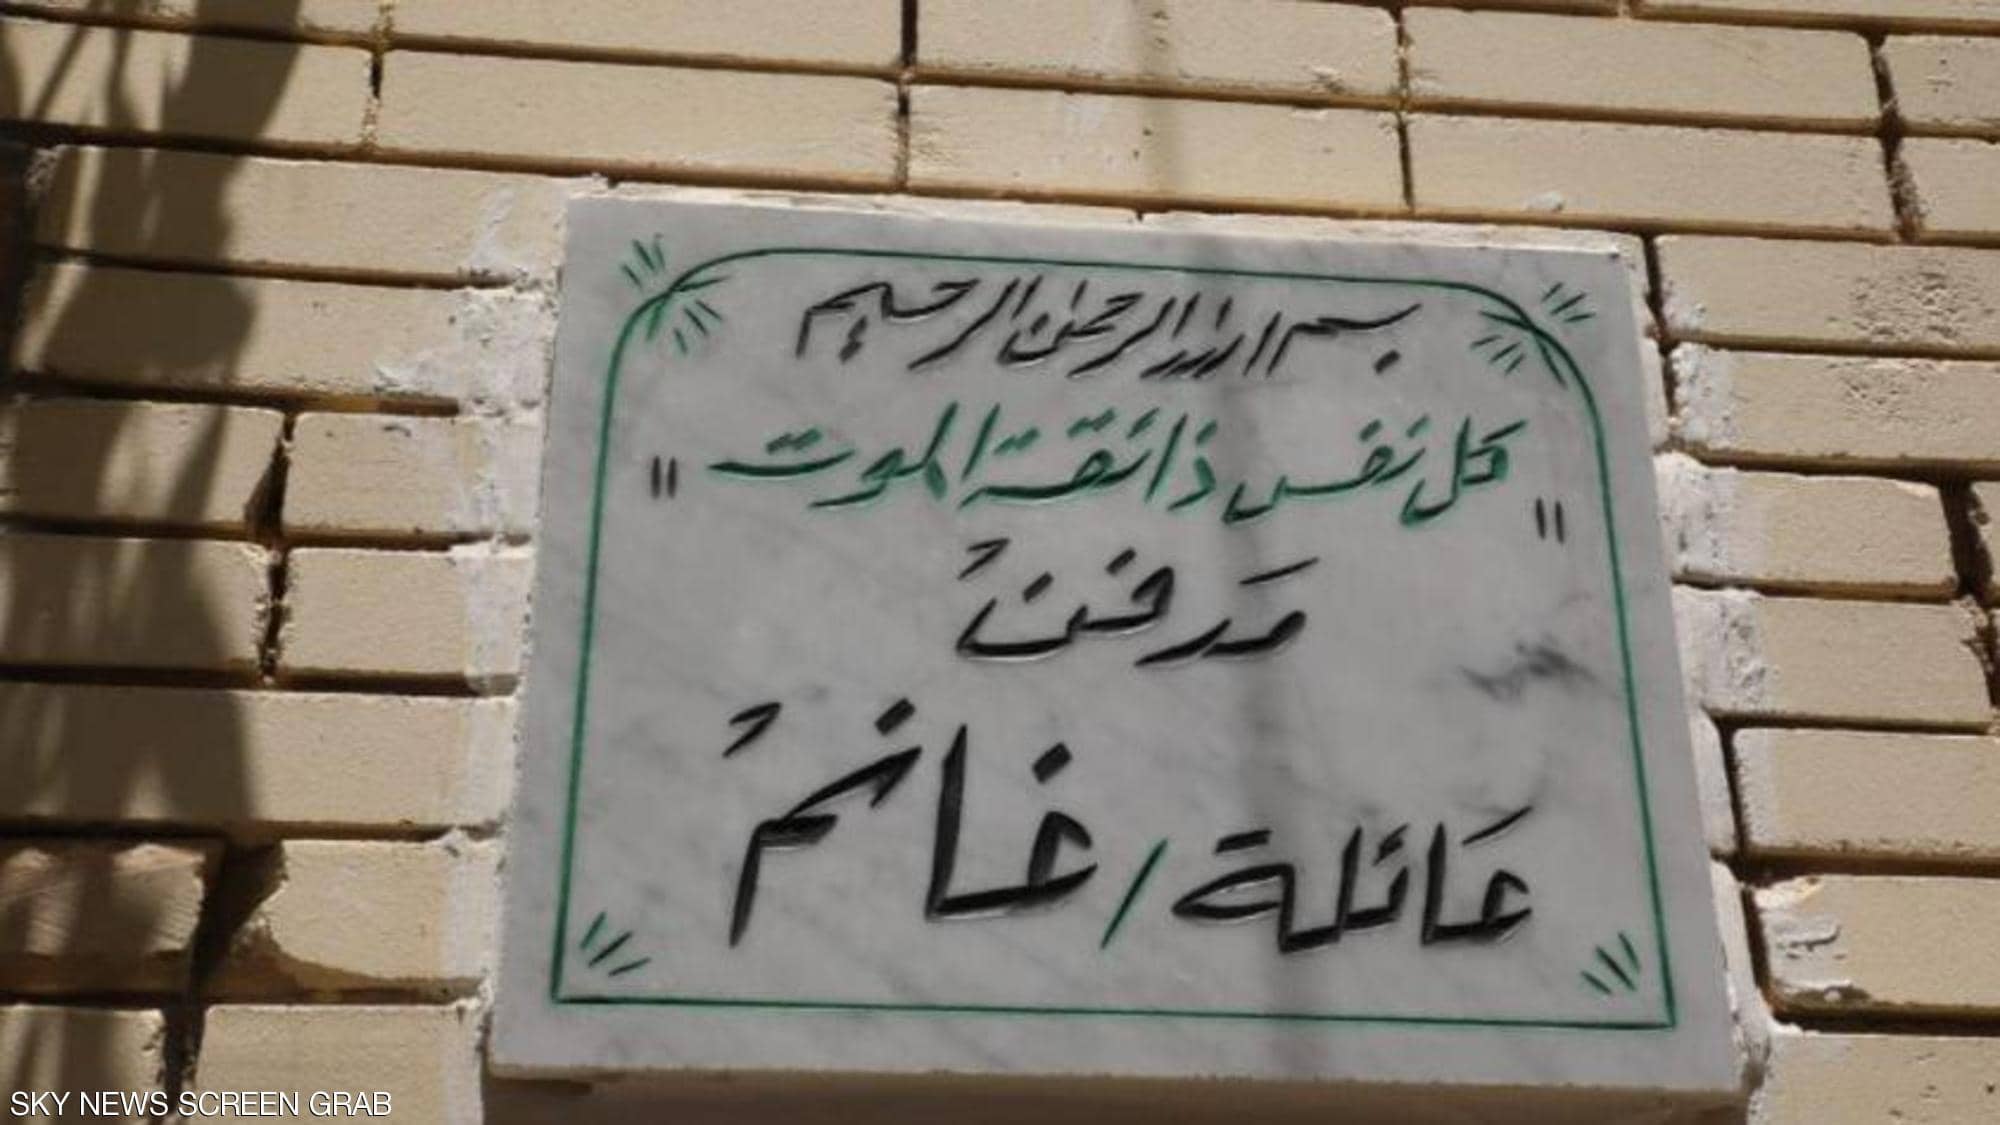 بسم الله الرحمن الرحيم
" كل نفس ذائقة الموت "
مدفن
عائلة / غانم
SKY NEWS SCREEN GRAB